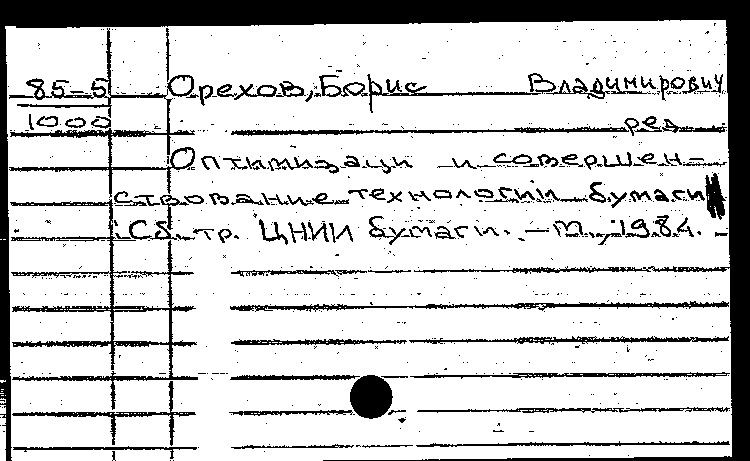 85-5 Орехов, Борис Владимирович
1000 ред
Оптимизаци и совершен-
ствование технологии бумаги
Сб. тр. ЦНИИ бумаги. - М., 1984.